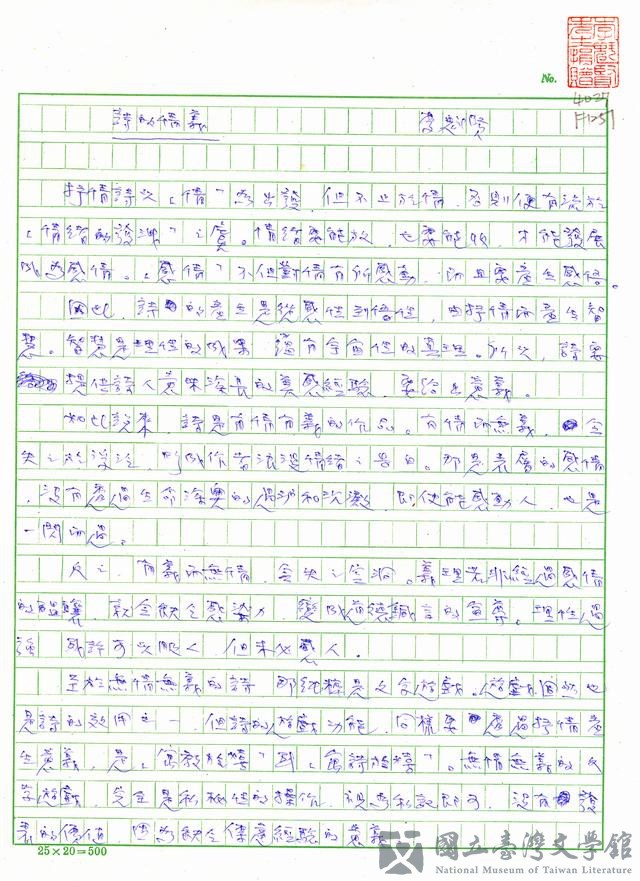 No.
4027
F1257
詩的情義　　李魁賢
抒情詩以「情」為出發，但不止於情，否則便有流於
「情緒的發洩」之虞。情緒要能放，也要能收，才能發展
成為感情。「感情」不但對情有所感動，而且要產生感悟。
因此，詩的產生是從感性到悟性，由抒情而產生智
慧。智慧是理性的成果，蘊有宇宙性的真理。所以，詩要
提供讀人意味深長的美感經驗，要給出意義。
如此說來，詩是有情有義的作品。有情而無義，會
失之於淺泛，則成作者浪漫情緒之告白。那是表層的感情
，沒有透過生命深奧的過濾和沉澱，即使能感動人，也是
一閃而過。
反之，有義而無情，會失之空洞。義理若非經過感情
的，就會缺乏感染力，變成道德的宣導。理性過
強，或許可以服人，但未必感人。
至於無情無義的詩，那純粹是文字遊戲。遊戲固然也
是詩的效用之一，但詩的遊戲功能，同樣要透過抒情產
生意義，是「寓教於樂」或「寓詩於樂」。無情無義的文
字遊戲，完全是私秘性的操作，視為私設即可，沒有發
表的價值，因為缺乏傳意經驗的意義
25×20=500
國立臺灣文學館
National Museum of Taiwan Literature